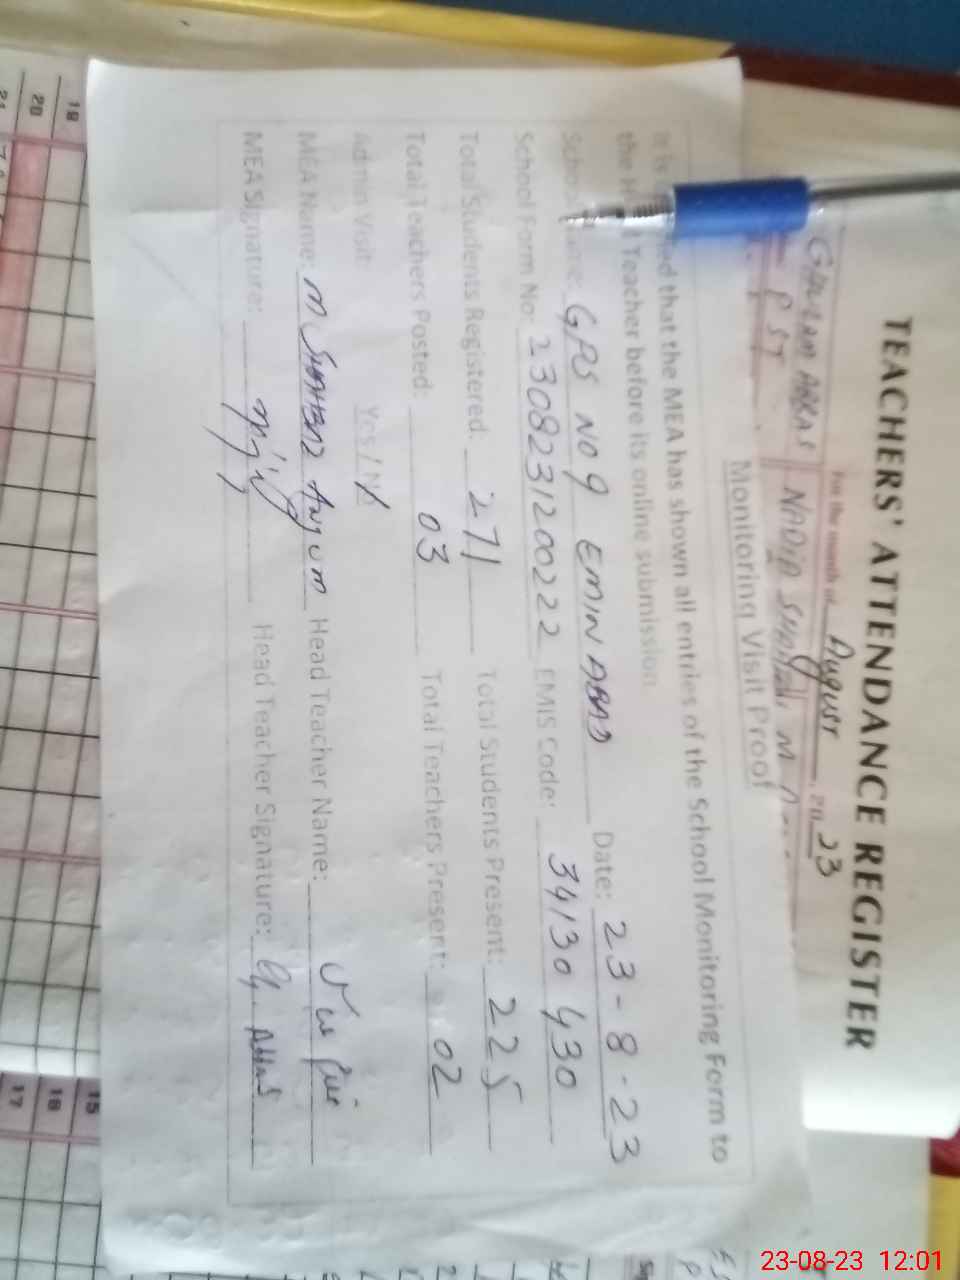 TEACHERS' ATTENDANCE REGISTER
For the month of August, 2023
GHULAM ABBAS NADIA
PST
Monitoring Visit Proof
It is that the MEA has shown all entries of the School Monitoring Form to
the Teacher before its online submission
School GPS NO 9 EMINABAD Date: 23-8-23
School Form No: 230823120022 2 EMIS Code: 34130430
Total Students Registered: 271 Total Students Present: 225
Total Teachers Posted: 03 Total Teachers Present: 02
Admin Visit: Yes / N
MEA Name: M Anjum Head Teacher Name:
MEA Signature: Head Teacher Signature: Abbas
18
20
21
15
16
17
23-08-23 12:01